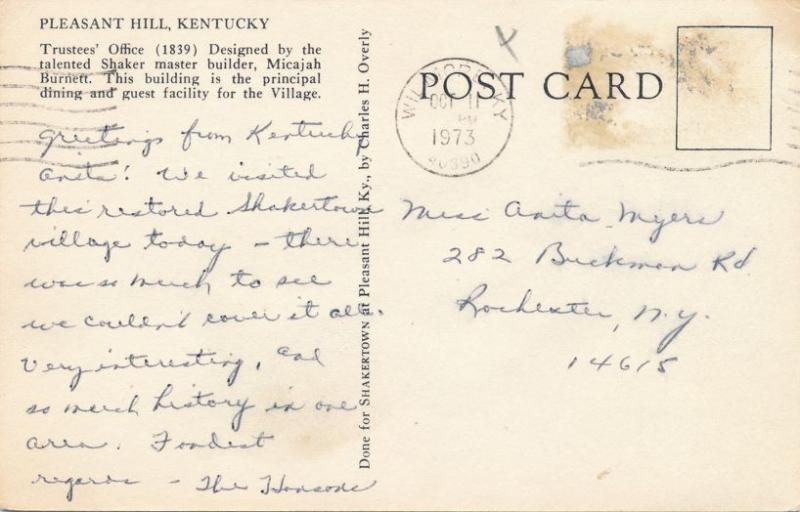 PLEASANT HILL, KENTUCKY
Trustees' Office (1839) Designed by the
talented Shaker master builder, Micajah
Burnett. This building is the principal
dining and guest facility for the Village.
Greetings from Kentucky
Anita! We visited
this restored Shakertown
village today – there
was so much to see
we couldn't cover it all.
Very interesting, and
so much history in one
area. Fondest
regards – The Hansons
Done for SHAKERTOWN at Pleasant Hill, Ky., by Charles H. Overly
POST CARD
WILMORE, KY
OCT 11
PM
1973
40390
Miss Anita Myers
282 Buckman Rd
Rochester, N.Y.
14615